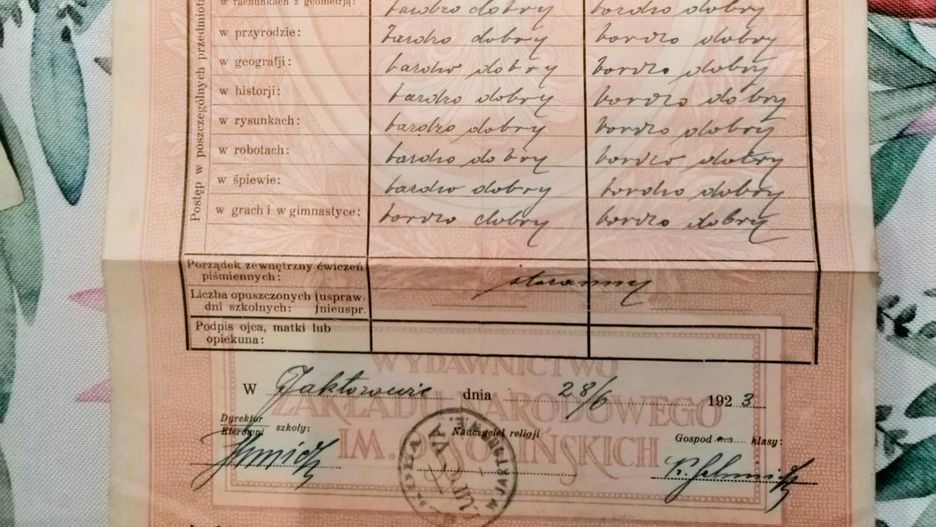 Postęp w poszczególnych przedmiota
w rachunkach z geometrją: bardzo dobry bardzo dobry
w przyrodzie: bardzo dobry bardzo dobry
w geografji: bardzo dobry bardzo dobry
w historji: bardzo dobry bardzo dobry
w rysunkach: bardzo dobry bardzo dobry
w robotach: bardzo dobry bardzo dobry
w śpiewie: bardzo dobry bardzo dobry
w grach i w gimnastyce: bardzo dobry bardzo dobry
Porządek zewnętrzny ćwiczeń
piśmiennych: staranny
Liczba opuszczonych uspraw.
dni szkolnych: nieuspr.
Podpis ojca, matki lub
opiekuna:
WYDAWNICTWO
W dnia 28/6 1923
ZAKŁADU NARODOWEGO
Dyrektor
Kierowni szkoły: Nauczyciel religji Gospod klasy:
IM. OSSOLIŃSKICH